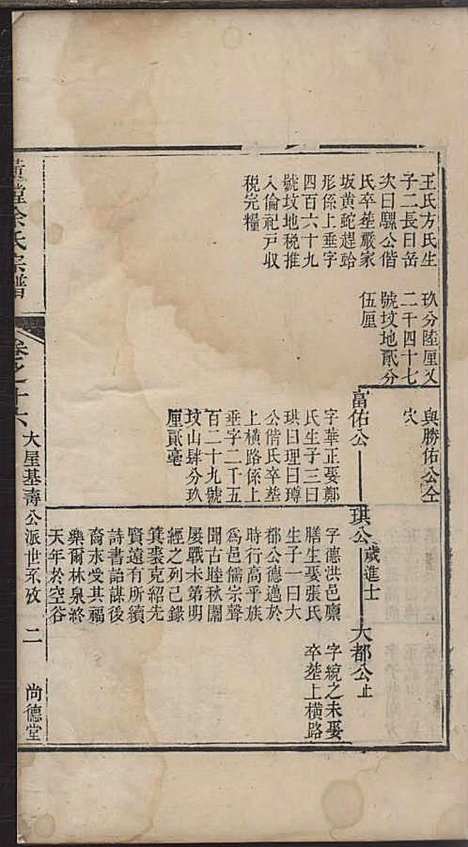 王氏方氏生
子二長曰岳
次曰騵公偕
氏卒塟嚴家
坂黄蛇趕蛤
形係上垂字
四百六十九
號坟地税推
入倫祀戸収
税完糧
玖分陸厘又
二千四十七
號坟地貳分
伍厘
與勝佑公仝
穴
富佑公
字華正娶鄭
氏生子三曰
珙曰理曰璹
公偕氏卒塟
上橫路係上
垂字二千五
百二十九號
坟山肆分玖
厘貳毫
珙公 歲進士
字德洪邑廩
膳生娶張氏
生子一曰大
都公德邁於
時行高乎族
爲邑儒宗聲
聞古睦秋闈
屡戰未第明
經之列己錄
箕裘克紹先
賢遠有所續
詩書詒謀後
裔永受其福
樂爾林泉終
天年於空谷
大都公 止
字統之未娶
卒塟上橫路
余氏宗譜
卷之十六
大屋基壽公派世系攷
二
尚德堂